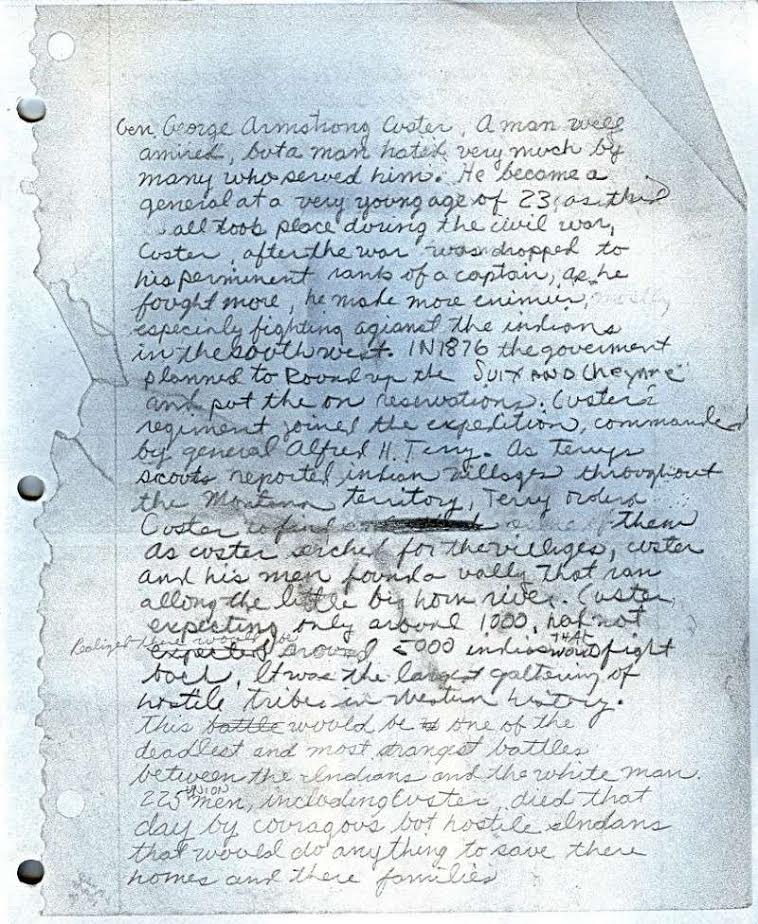 Gen George Armstrong Custer, A man well
amired, but a man hated very much by
many who served him. He became a
general at a very young age of 23, as this
all took place during the civil war,
Custer, after the war was dropped to
his perminent rank of a captain, as he
fought more, he made more enimies, mostly
especialy fighting agianst the indians
in the south west. IN 1876 the goverment
planned to Round up the SUIX AND Cheyenne
and put the on reservations. Custers
regiment joined the expedition, commanded
by general Alfred H. Terry. As terrys
scouts reported indian villages throughout
the Montana territory, Terry orderd
Custer to find them
As custer serched for the villiges, custer
and his men found a vally that ran
allong the little big horn river. Custer
expecting only around 1000, had not
Realized there would be
expected around 5000 indians THAT would fight
back, It was the largest gathering of
hostile tribes in Western history.
This battle would be one of the
deadlest and most strangest battles
between the Indians and the white man.
225 UNION men, including Custer, died that
day by couragous but hostile Indans
that would do anything to save there
homes and there families